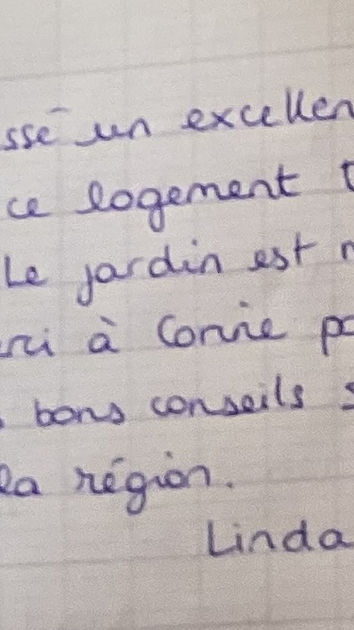 ssé un excellen
ce logement
Le jardin est
à Corrie
bons conseils s
la région.
Linda